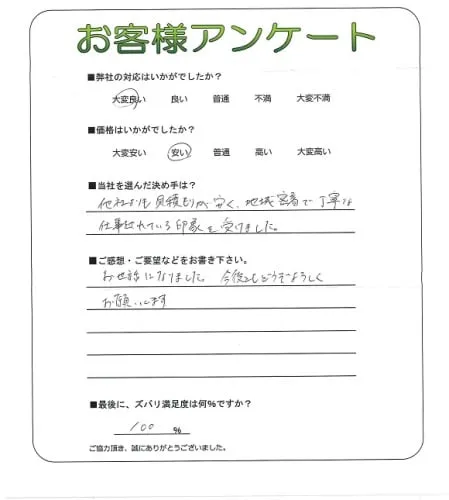 お客様アンケート
■弊社の対応はいかがでしたか？
大変良い 良い 普通 不満 大変不満
■価格はいかがでしたか？
大変安い 安い 普通 高い 大変高い
■当社を選んだ決め手は？
他社よりも見積もりが安く、地域密着で丁寧な
仕事されている印象を受けました。
■ご感想・ご要望などをお書き下さい。
お世話になりました。今後ともどうぞよろしく
お願いします
■最後に、ズバリ満足度は何％ですか？
100 %
ご協力頂き、誠にありがとうございました。